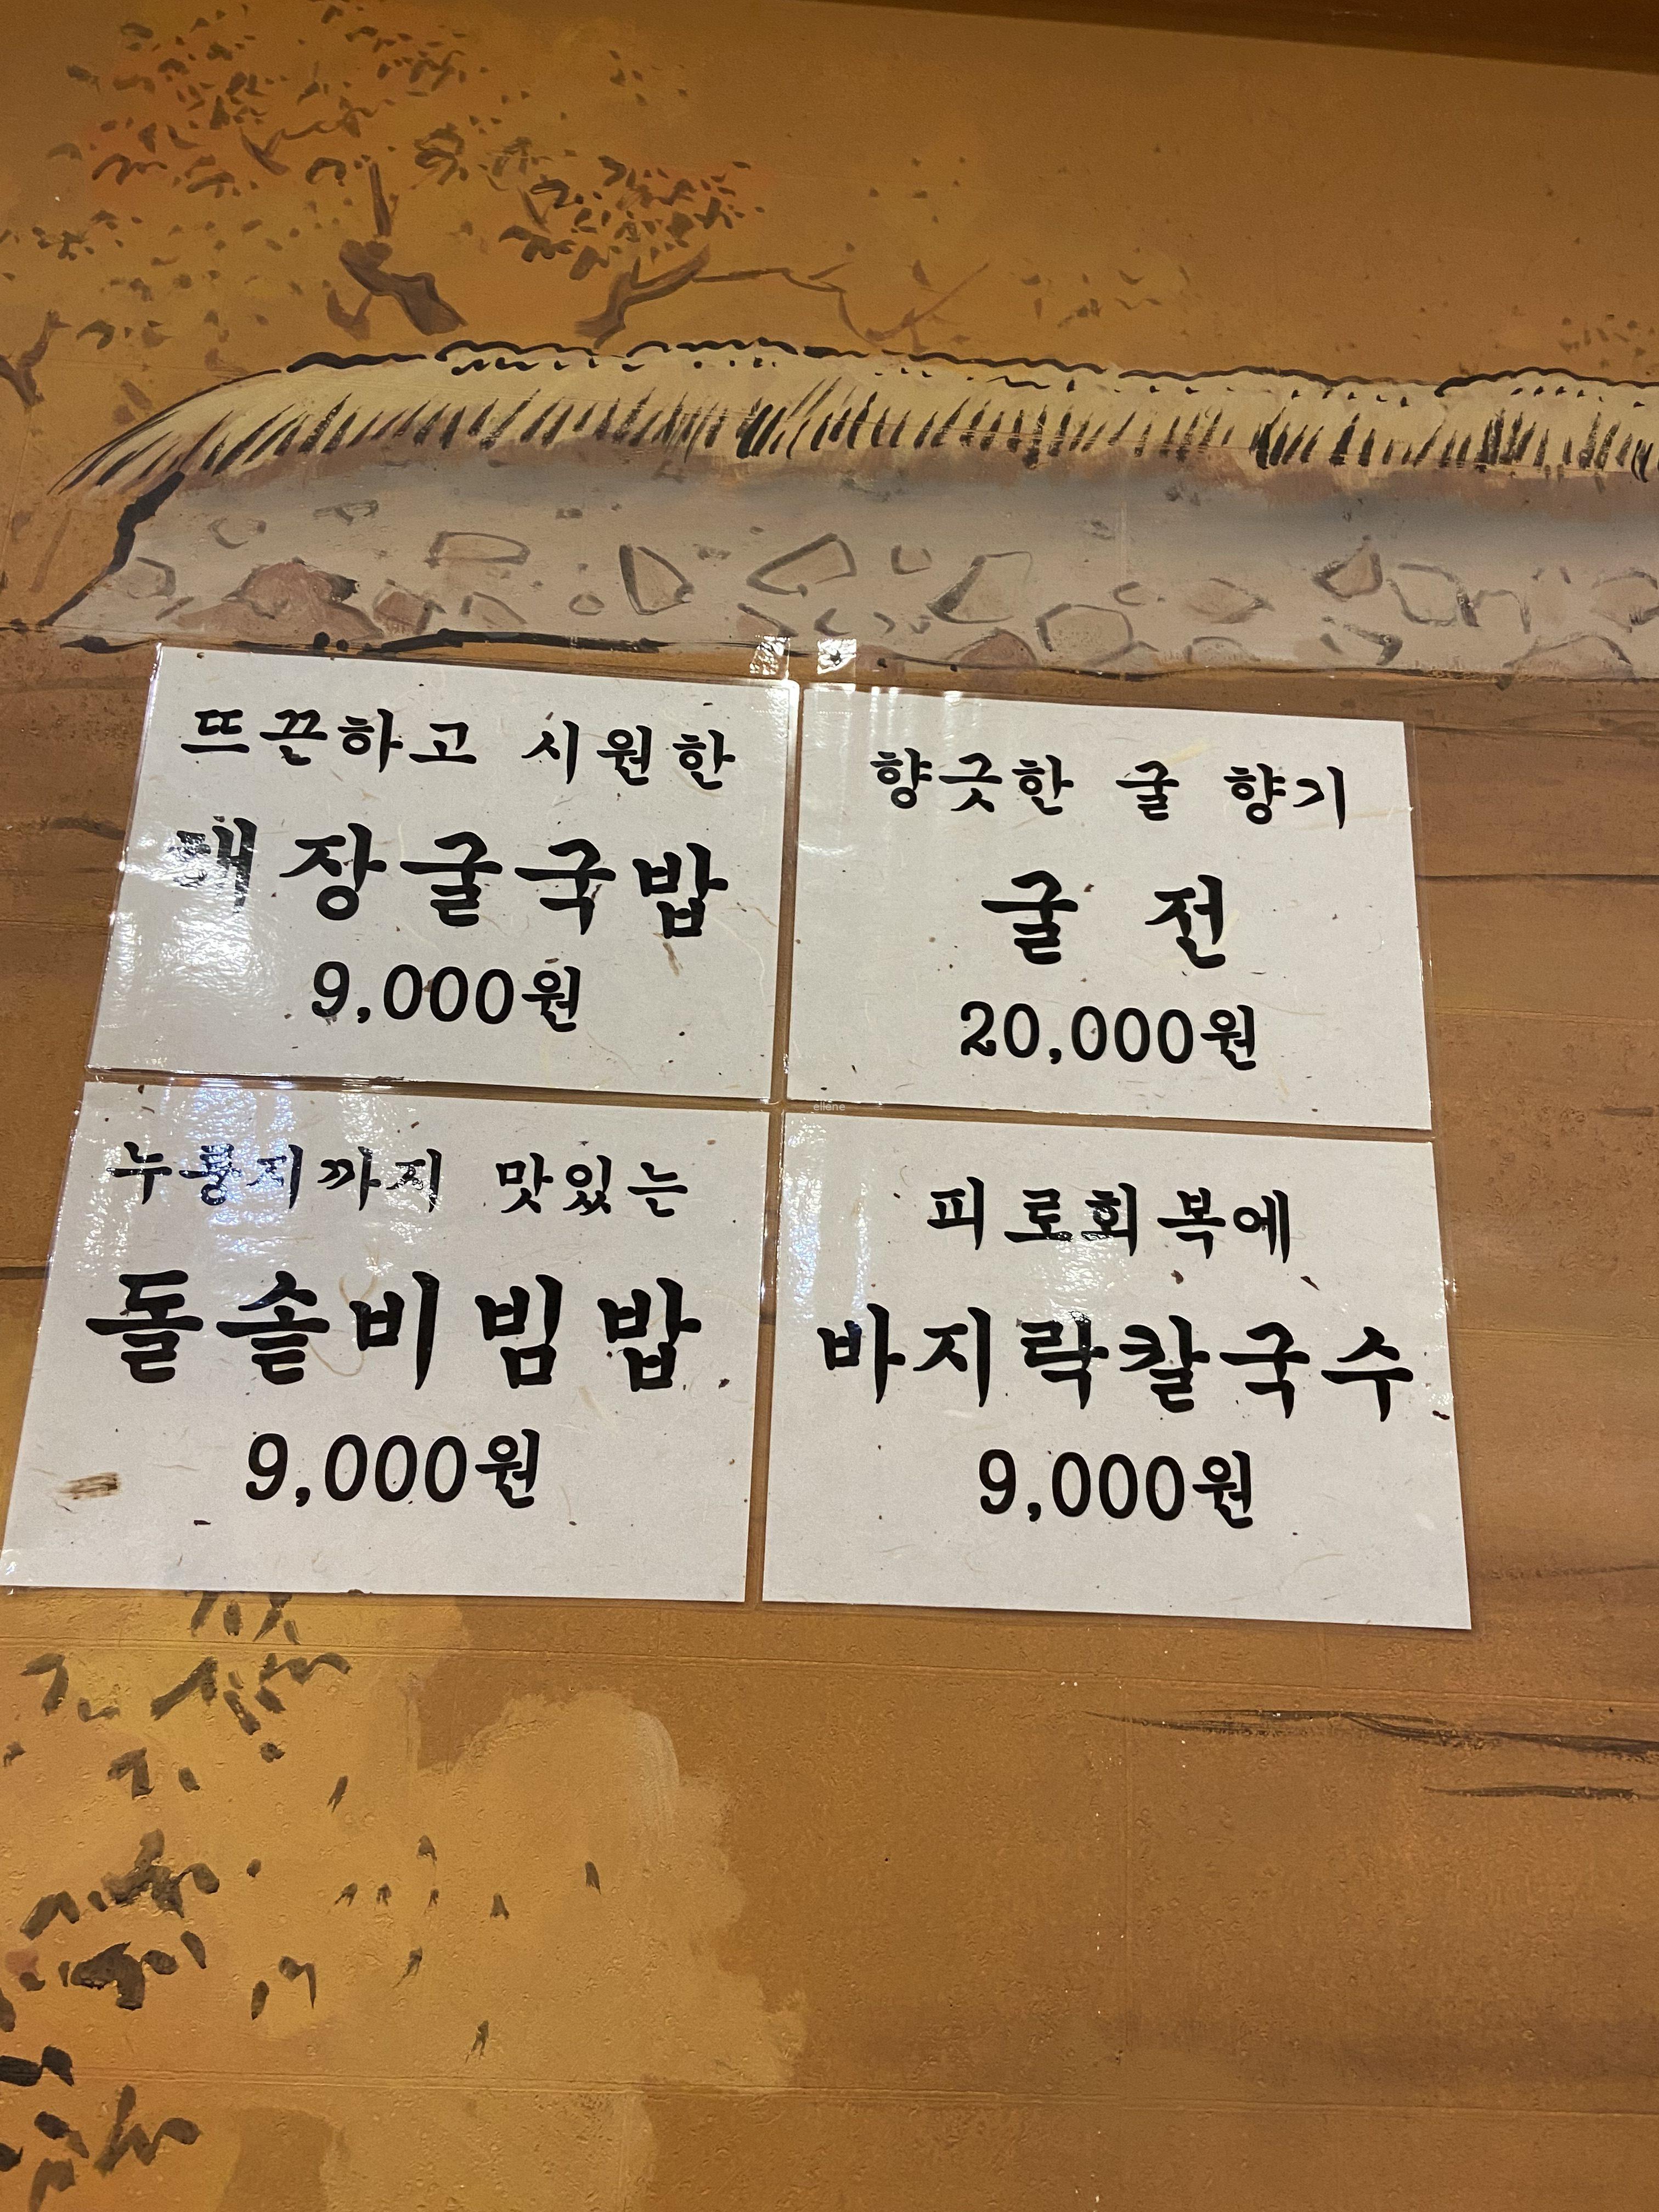 뜨끈하고 시원한
해장굴국밥
9,000원
향긋한 굴 향기
굴 전
20,000원
누룽지까지 맛있는
돌솥비빔밥
9,000원
피로회복에
바지락칼국수
9,000원
ellene